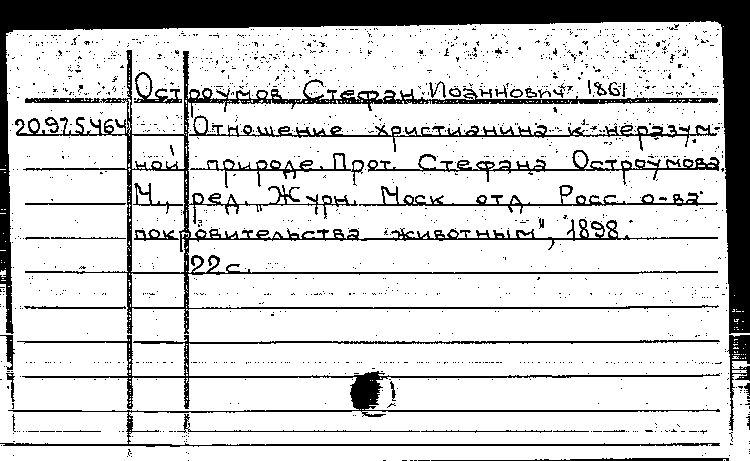 Остроумов, Стефан Иоаннович, 1861
20.97.5.464 Отношение христианина к неразум-
ной природе. Прот. Стефана Остроумова.
М., ред. „Журн. Моск. отд. Росс. о-ва
покровительства животным", 1898.
22 с.